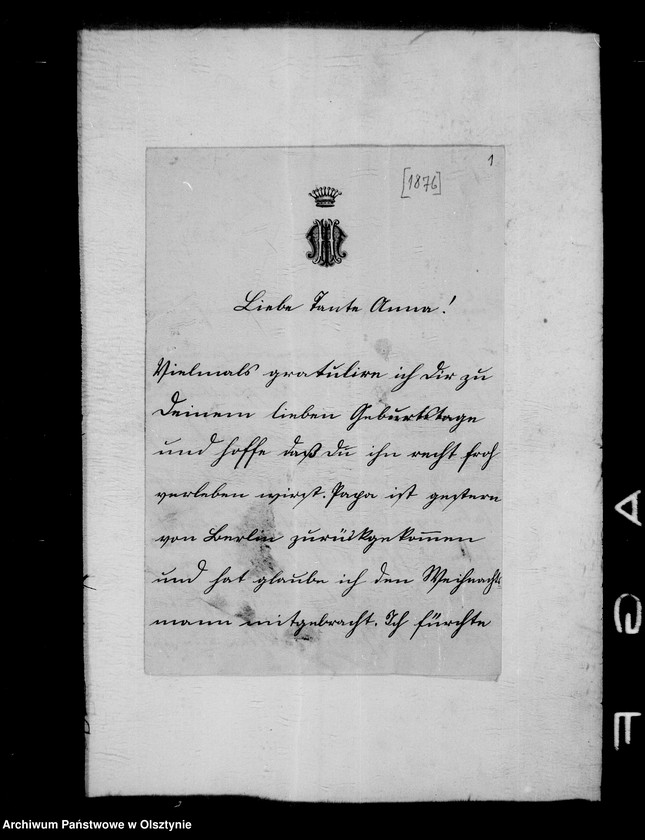 1
[1876]
Liebe Tante Anna!
Vielmals gratulire ich dir zu
Deinem lieben Geburtstage
und hoffe daß du ihn recht froh
verleben wirst. Papa ist gestern
von Berlin zurückgekom̄en
und hat glaube ich den Weihnachts
mann mitgebracht. Ich fürchte
A G F
Archiwum Państwowe w Olsztynie